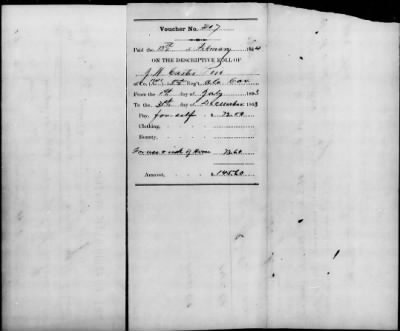 Voucher No. 217
Paid the 15th of February 1864
ON THE DESCRIPTIVE ROLL OF
J. W. Carter
of Co. Reg't. Ala Cav
From the 1st day of July 1863
To the 31st day of December 1863
Pay, for self $ 72.00
Clothing,
Bounty,
For use & risk of Horse 73.60
Amount, $ 145.60